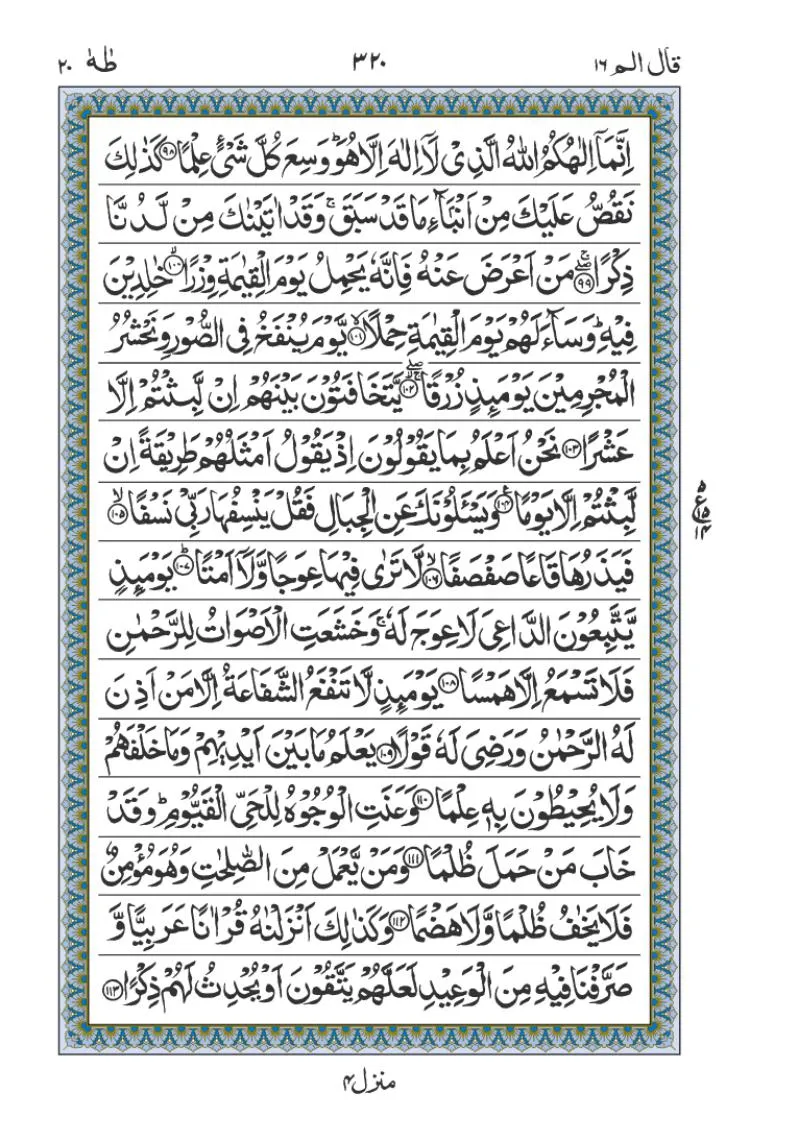 قال الم ١٦ ٣٢٠ طٰهٰ ٢٠
اِنَّمَاۤ اِلٰهُكُمُ اللّٰهُ الَّذِىْ لَاۤ اِلٰهَ اِلَّا هُوَ‌ؕ وَسِعَ كُلَّ شَىْءٍ عِلْمًا‏ ﴿۹۸﴾ كَذٰلِكَ
نَقُصُّ عَلَيْكَ مِنْ اَنْۢبَآءِ مَا قَدْ سَبَقَ‌ ۚ وَقَدْ اٰتَيْنٰكَ مِنْ لَّدُنَّا
ذِكْرًا ۖ ۚ‏ ﴿۹۹﴾ مَنْ اَعْرَضَ عَنْهُ فَاِنَّهٗ يَحْمِلُ يَوْمَ الْقِيٰمَةِ وِزْرًا ۙ‏ ﴿۱۰۰﴾ خٰلِدِيْنَ
فِيْهِ‌ ؕ وَسَآءَ لَهُمْ يَوْمَ الْقِيٰمَةِ حِمْلًا ۙ‏ ﴿۱۰۱﴾ يَّوْمَ يُنْفَخُ فِى الصُّوْرِ وَنَحْشُرُ
الْمُجْرِمِيْنَ يَوْمَٮِٕذٍ زُرْقًا ۖ ۚ‏ ﴿۱۰۲﴾ يَّتَخَافَتُوْنَ بَيْنَهُمْ اِنْ لَّبِثْتُمْ اِلَّا
عَشْرًا‏ ﴿۱۰۳﴾ نَحْنُ اَعْلَمُ بِمَا يَقُوْلُوْنَ اِذْ يَقُوْلُ اَمْثَلُهُمْ طَرِيْقَةً اِنْ
لَّبِثْتُمْ اِلَّا يَوْمًا ‏ ﴿۱۰۴﴾ وَيَسْـَٔـلُوْنَكَ عَنِ الْجِبَالِ فَقُلْ يَنْسِفُهَا رَبِّىْ نَسْفًا ۙ‏ ﴿۱۰۵﴾
فَيَذَرُهَا قَاعًا صَفْصَفًا ۙ‏ ﴿۱۰۶﴾ لَّا تَرٰى فِيْهَا عِوَجًا وَّلَاۤ اَمْتًا ؕ‏ ﴿۱۰۷﴾ يَوْمَٮِٕذٍ
يَّتَّبِعُوْنَ الدَّاعِىَ لَا عِوَجَ لَهٗ‌ؕ وَخَشَعَتِ الْاَصْوَاتُ لِلرَّحْمٰنِ
فَلَا تَسْمَعُ اِلَّا هَمْسًا‏ ﴿۱۰۸﴾ يَوْمَٮِٕذٍ لَّا تَنْفَعُ الشَّفَاعَةُ اِلَّا مَنْ اَذِنَ
لَهُ الرَّحْمٰنُ وَرَضِىَ لَهٗ قَوْلًا‏ ﴿۱۰۹﴾ يَعْلَمُ مَا بَيْنَ اَيْدِيْهِمْ وَمَا خَلْفَهُمْ
وَلَا يُحِيْطُوْنَ بِهٖ عِلْمًا‏ ﴿۱۱۰﴾ وَعَنَتِ الْوُجُوْهُ لِلْحَىِّ الْقَيُّوْمِ‌ؕ وَقَدْ
خَابَ مَنْ حَمَلَ ظُلْمًا‏ ﴿۱۱۱﴾ وَمَنْ يَّعْمَلْ مِنَ الصّٰلِحٰتِ وَهُوَ مُؤْمِنٌ
فَلَا يَخٰفُ ظُلْمًا وَّلَا هَضْمًا‏ ﴿۱۱۲﴾ وَكَذٰلِكَ اَنْزَلْنٰهُ قُرْاٰنًا عَرَبِيًّا وَّ
صَرَّفْنَا فِيْهِ مِنَ الْوَعِيْدِ لَعَلَّهُمْ يَتَّقُوْنَ اَوْ يُحْدِثُ لَهُمْ ذِكْرًا‏ ﴿۱۱۳﴾
۵
ع
۱۵
۱۴
منزل ۴